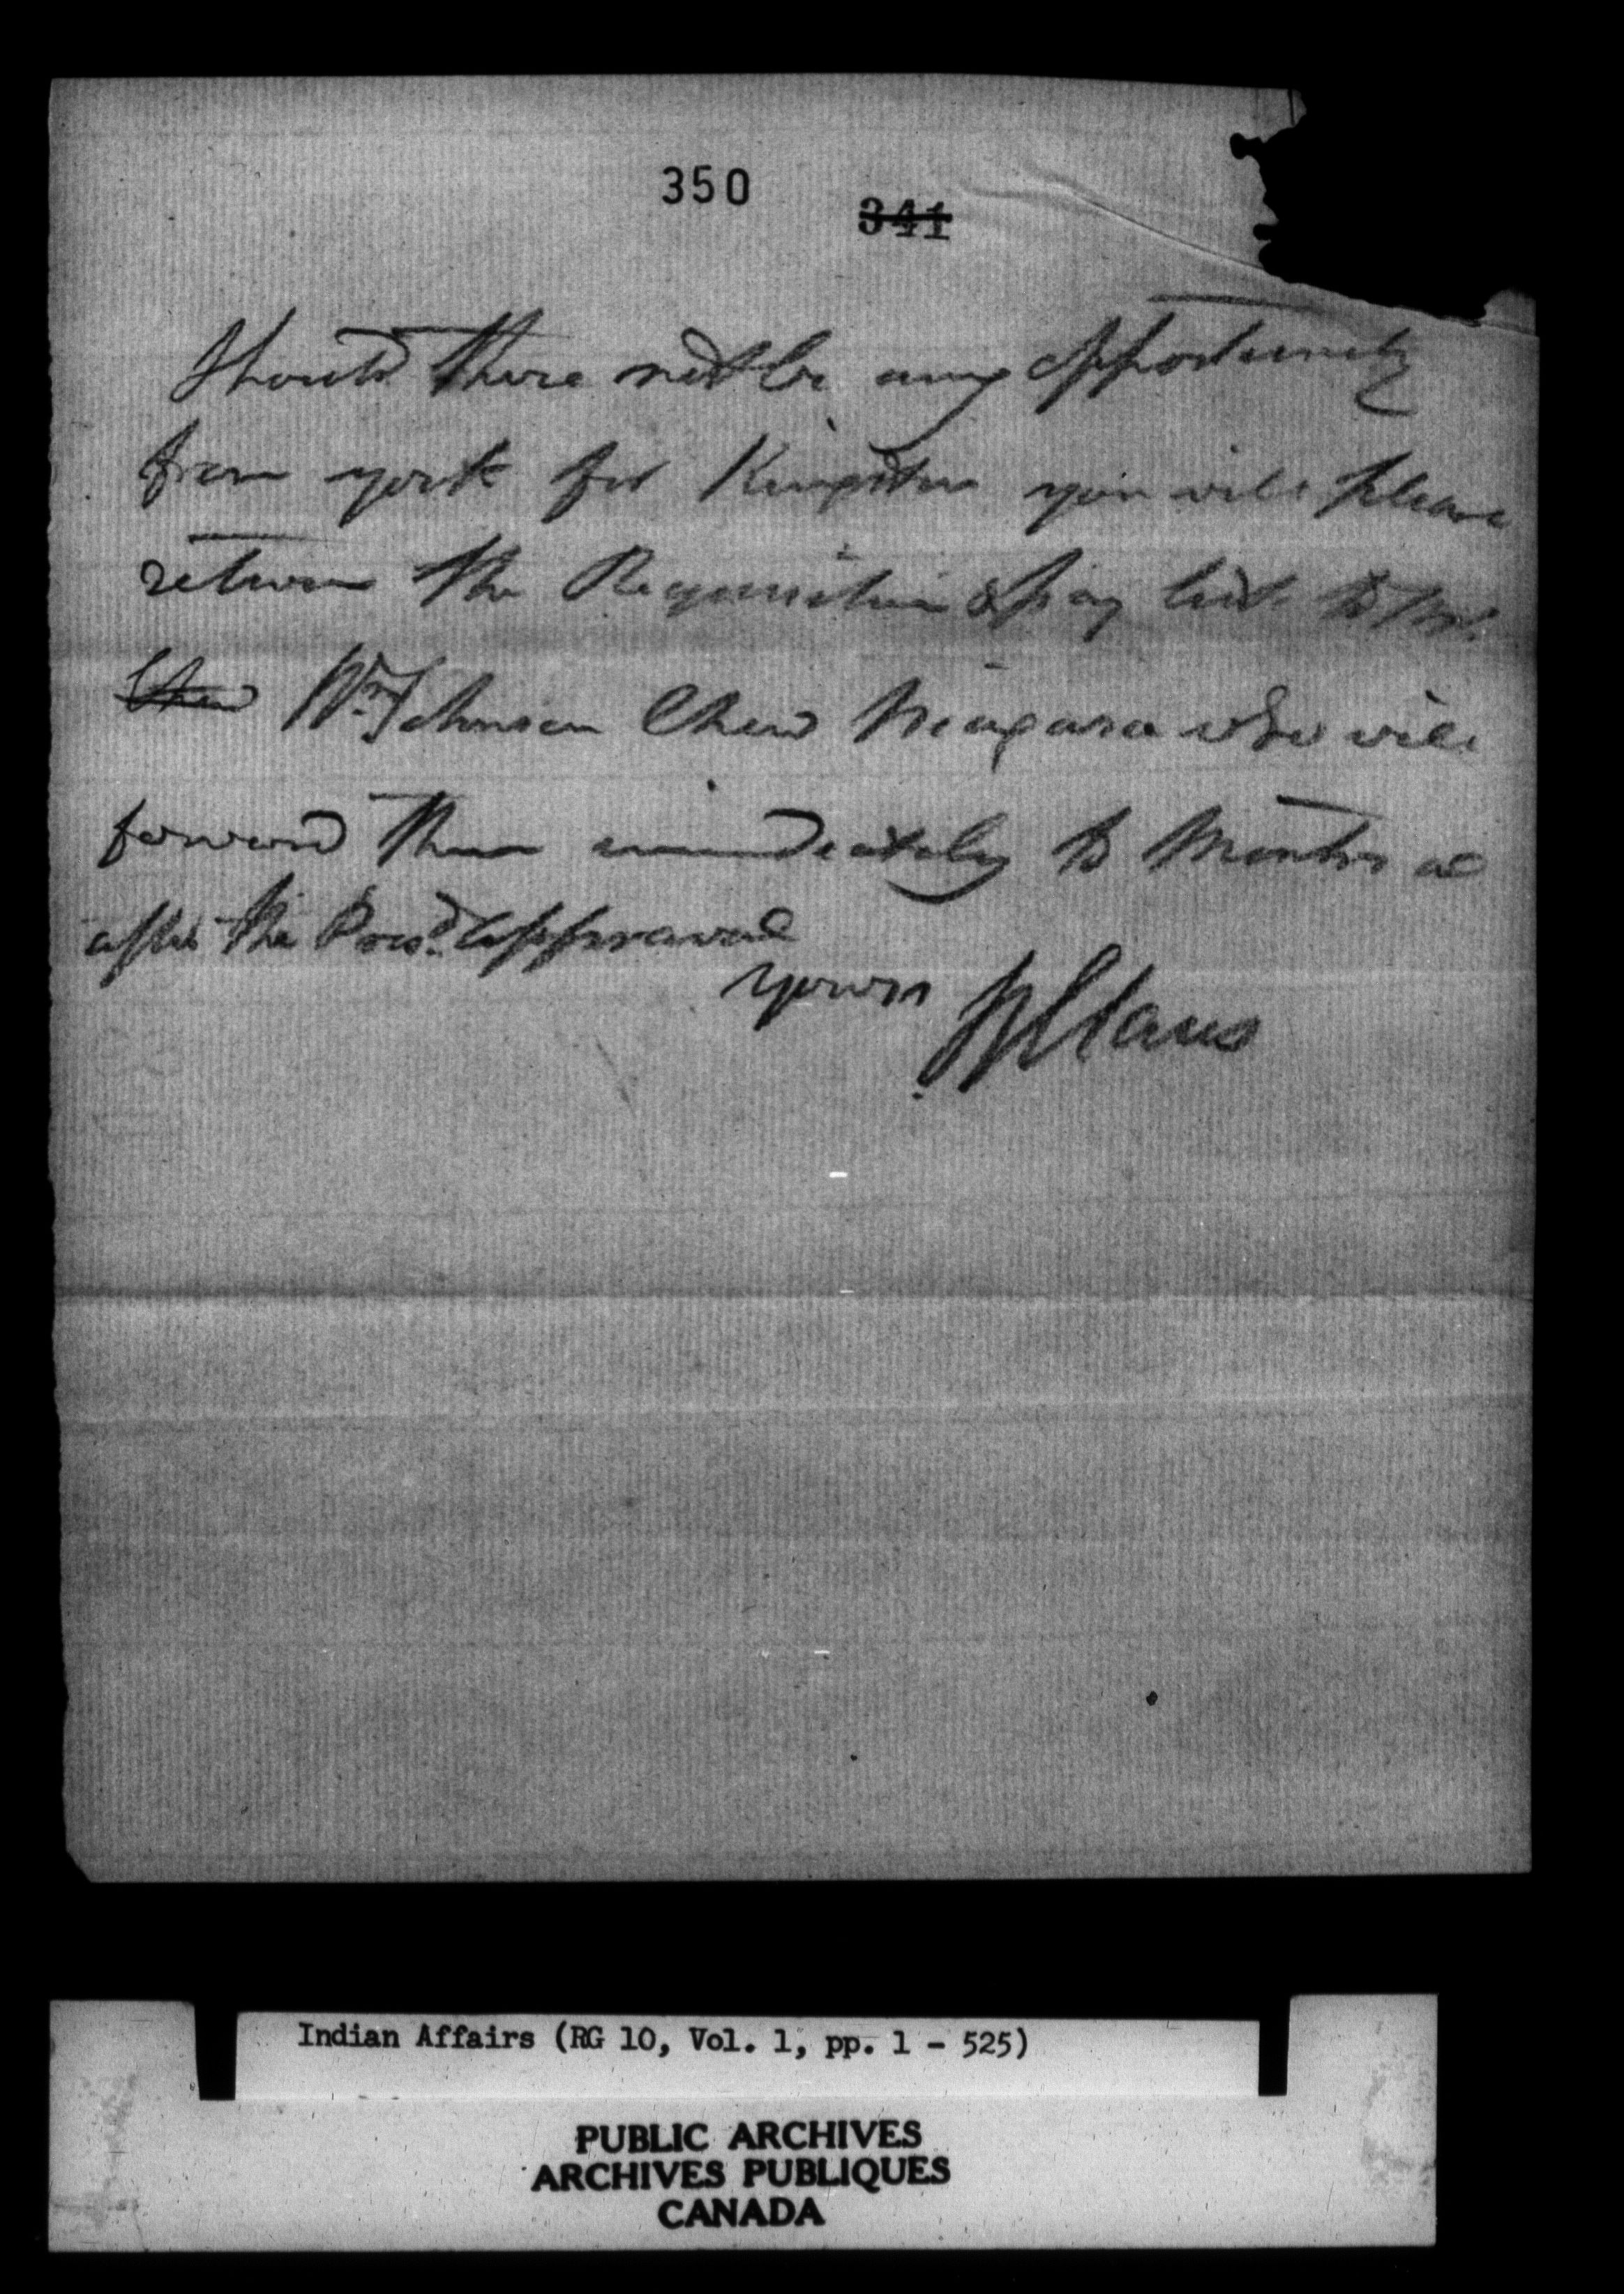 350
341
Should there not be any opportunity
from york for Kingston you will please
return the Requisition & pay list to Mr.
Chew Wm. Johnson Chew Niagara who will
forward them immediately to Montreal
after the Presd. Approval
yours WClaus
Indian Affairs (RG 10, Vol. 1, pp. 1 - 525)
PUBLIC ARCHIVES
ARCHIVES PUBLIQUES
CANADA